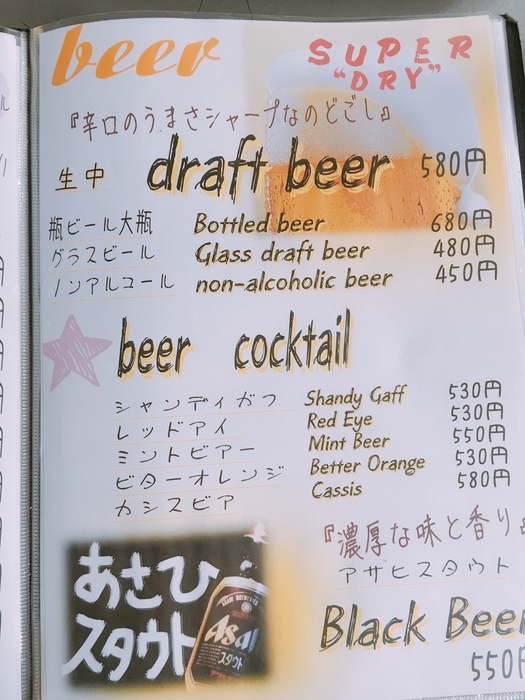 beer
SUPER
"DRY"
『辛口のうまさシャープなのどごし』
生中 draft beer 580円
瓶ビール大瓶 Bottled beer 680円
グラスビール Glass draft beer 480円
ノンアルコール non-alcoholic beer 450円
beer cocktail
シャンディガフ Shandy Gaff 530円
レッドアイ Red Eye 530円
ミントビアー Mint Beer 550円
ビターオレンジ Better Orange 530円
カシスビア Cassis 580円
『濃厚な味と香り
アサヒスタウト
あさひ
スタウト
Asahi
スタウト
Black Beer
550円